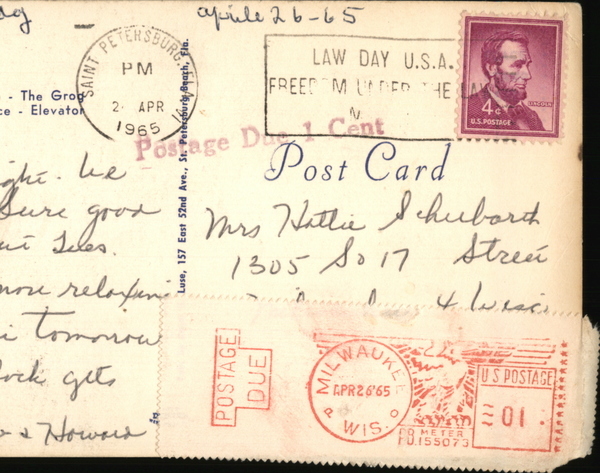 aprile 26-65
SAINT PETERSBURG, FLA.
PM
2 APR
1965
LAW DAY U.S.A.
FREEDOM UNDER THE LAW
4¢
LINCOLN
U.S. POSTAGE
- The Grod
ce - Elevator
Postage Due 1 Cent
Luse, 157 East 52nd Ave., St. Petersburg Beach, Fla.
Post Card
ght. We
Sure good
Sees.
more relaxin
tomorrow
gets
& Howard
Mrs Hattie Schubarth
1305 So 17 Street
4 Wisc
POSTAGE
DUE
MILWAUKEE
APR 26 '65
WIS.
P O
PO METER
P.D. 155073
U S POSTAGE
01